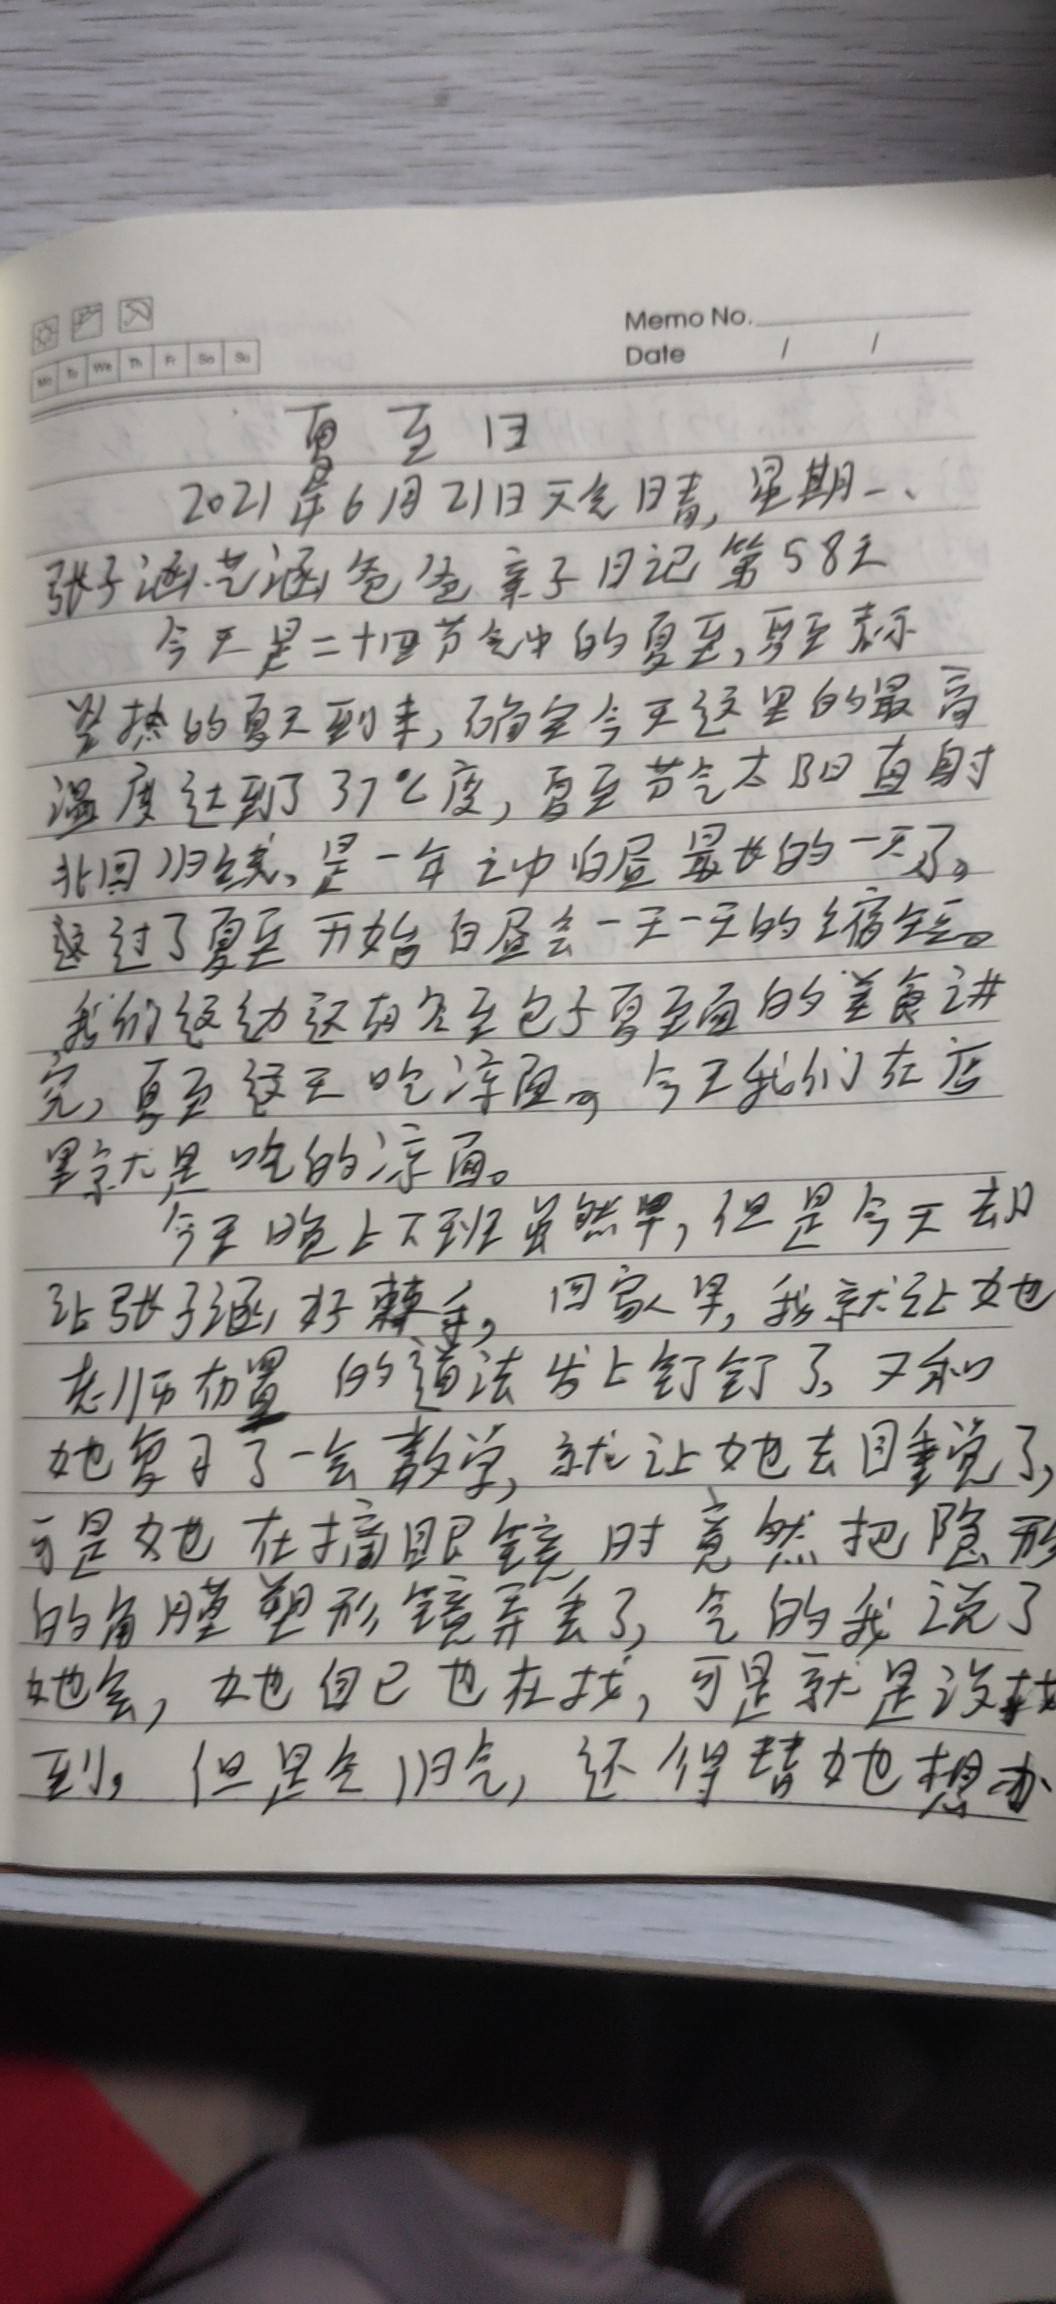 Memo No.
Date / /
Mo Tu We Th Fr Sa Su
夏至日
2021年6月21日天气晴,星期一、
张子涵.艺涵爸爸亲子日记第58天
今天是二十四节气中的夏至,夏至表示
炎热的夏天到来,确实今天这里的最高
温度达到了37℃度,夏至节气太阳直射
北回归线、是一年之中白昼最长的一天了。
这过了夏至开始白昼会一天一天的缩短。
我们这边还有冬至包子夏至面的美食讲
究,夏至这天吃凉面。今天我们在店
里就是吃的凉面。
今天晚上下班虽然早,但是今天却
让张子涵好棘手。回家早,我就让她
老师布置的道法发上钉钉了。又和
她复习了一会数学,就让她去睡觉了,
可是她在摘眼镜时竟然把隐形
的角膜塑形镜弄丢了,气的我说了
她会,她自己也在找,可是就是没找
到。但是气归气,还得替她想办